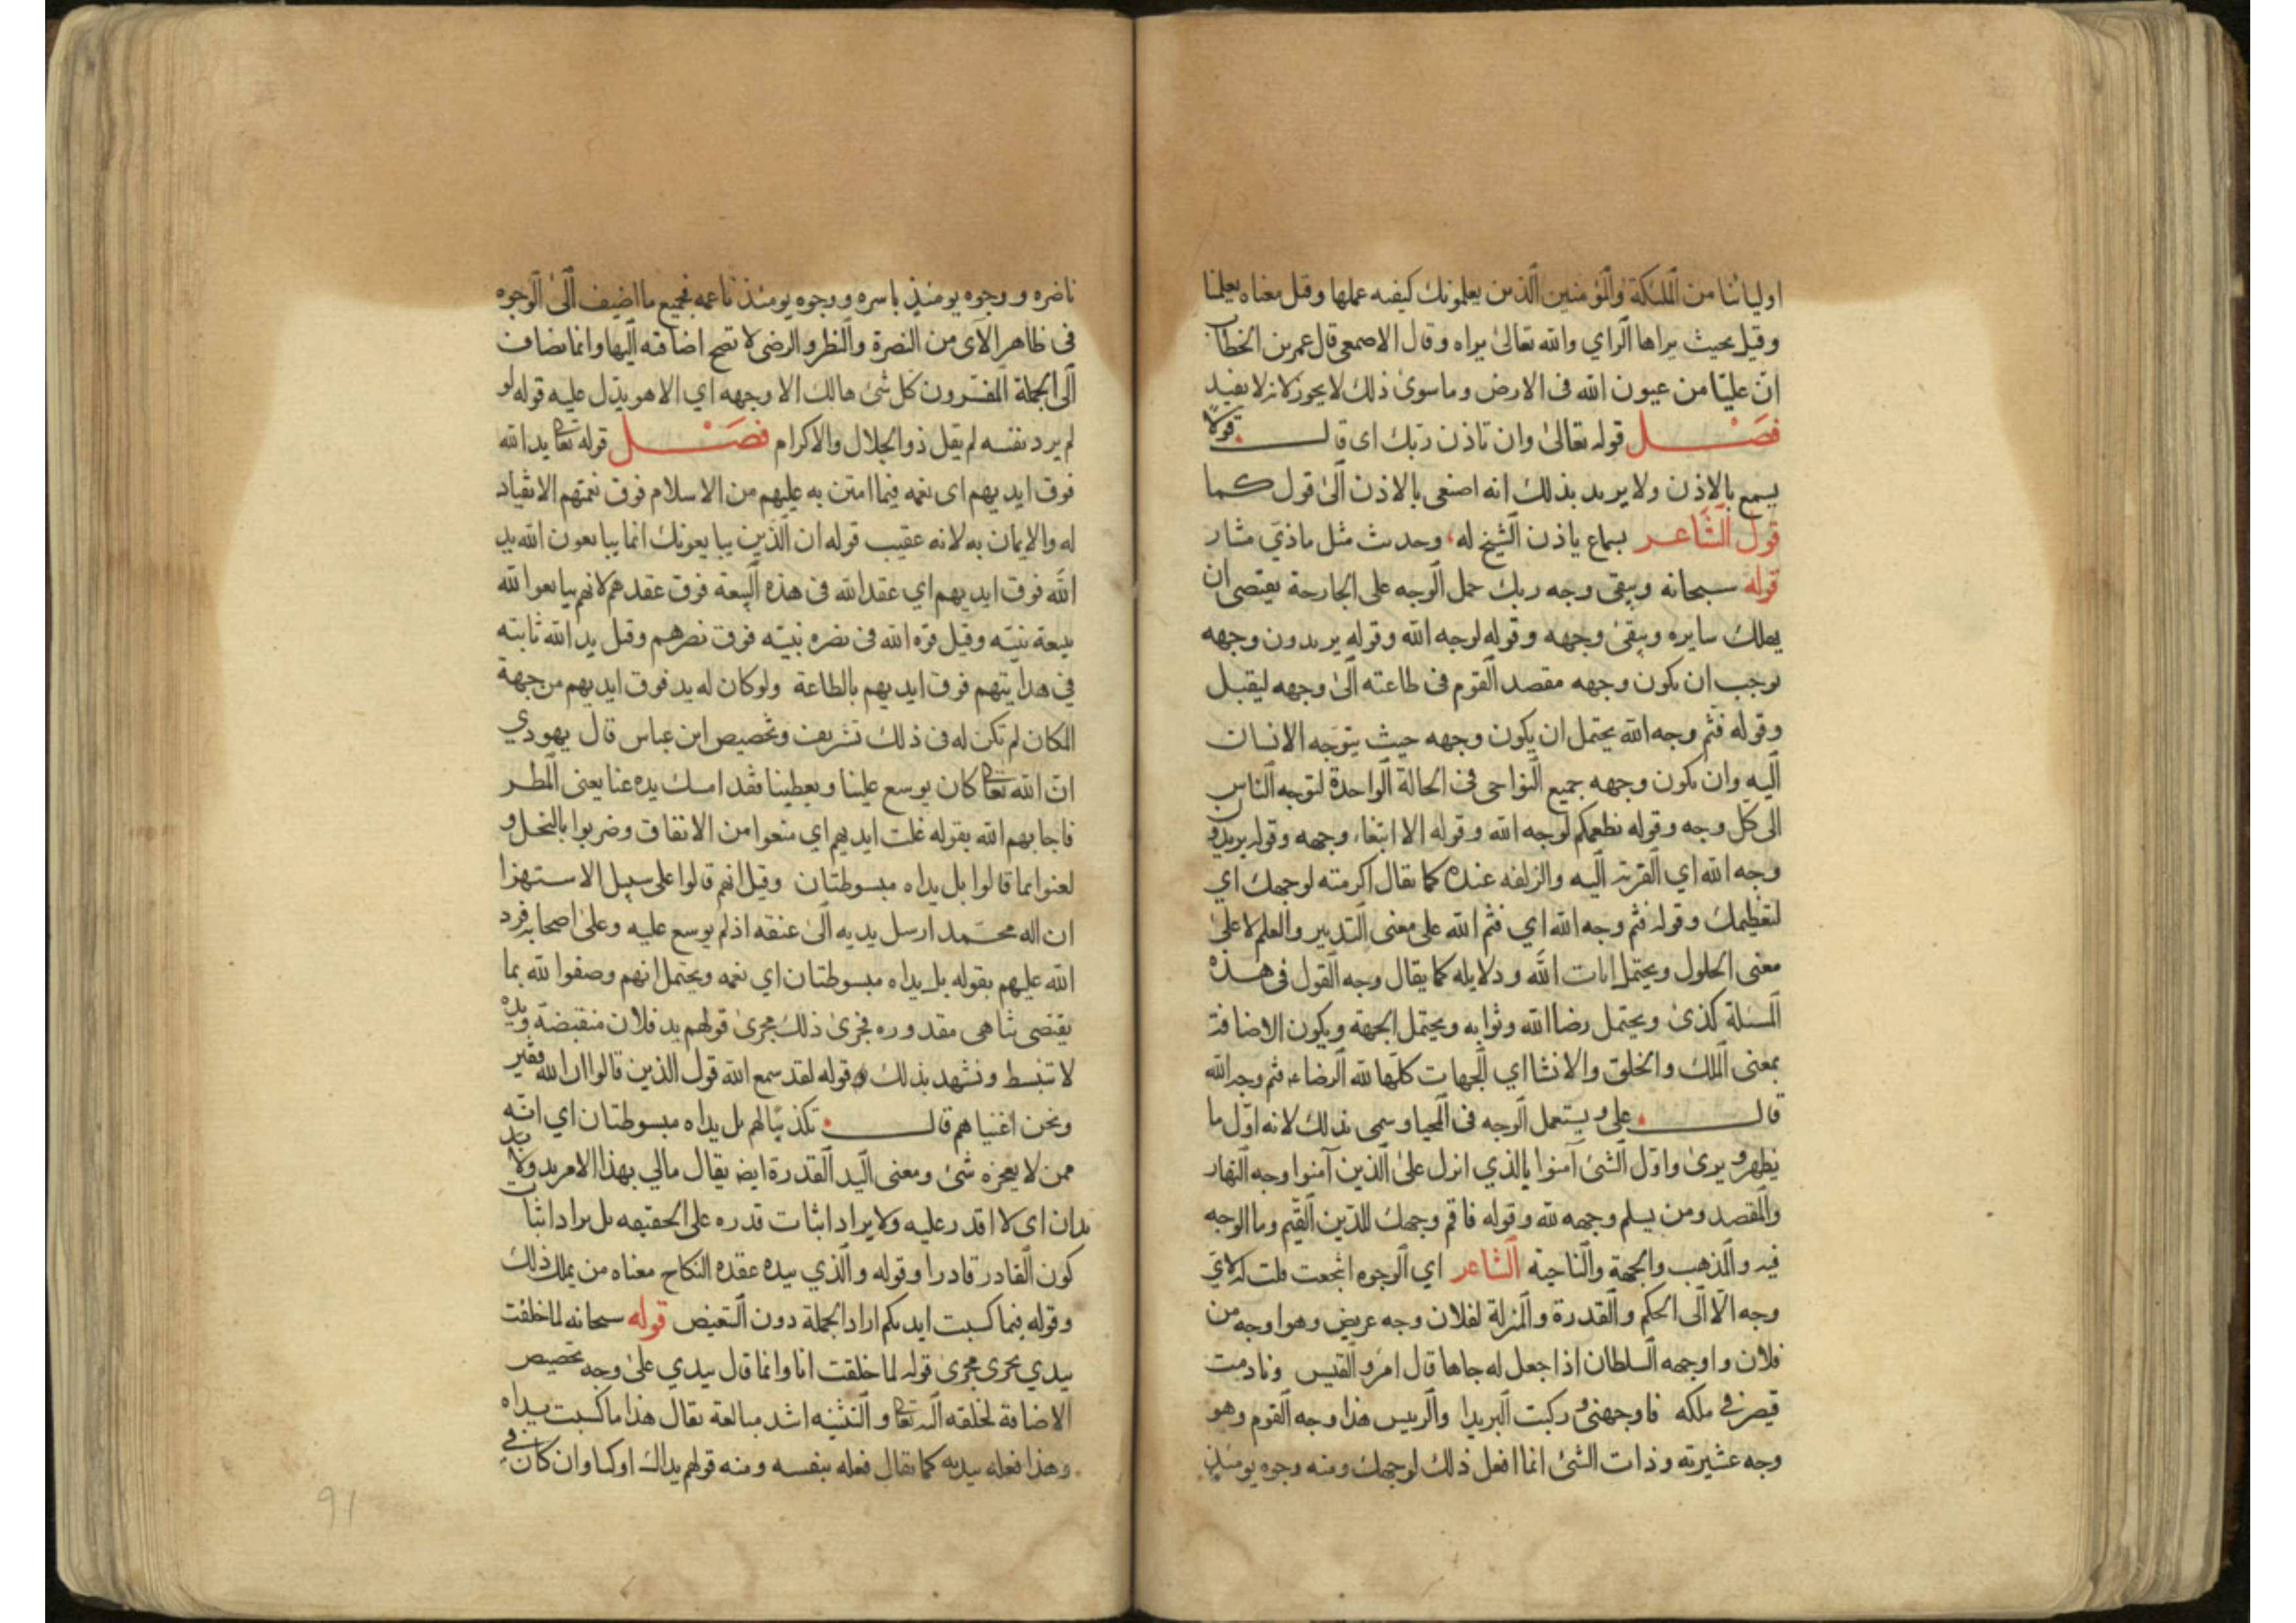 اوليائنا من الملئكة والمؤمنين الذين يعلمونك كيفيه عملها وقيل معناه بعلمنا
وقيل بحيث يراها الراي والله تعالى يراه وقال الاصمعى قال عمر بن الخطاب
ان عليّا من عيون الله فى الارض وما سوى ذلك لا يجوز لانه لا يفيد
فصل قوله تعالى وان تاذن ربك اى قال قولا
يسمع بالاذن ولا يريد بذلك انه اصغى بالاذن الى قول كما
قول الشاعر بسماع ياذن الشيخ له، وحديث مثل ماذي مشار
قوله سبحانه ويبقى وجه ربك حمل الوجه على الجارحة يقتضى ان
يهلك سايره ويبقى وجهه وقوله لوجه الله وقوله يريدون وجهه
توجب ان يكون وجهه مقصد القوم فى طاعته الى وجهه ليقبل
وقوله فثم وجه الله يحتمل ان يكون وجهه حيث يتوجه الانسان
اليه وان يكون وجهه جميع النواحى فى الحالة الواحدة لتوجه الناس
الى كل وجه وقوله نطعمكم لوجه الله وقوله الا ابتغاء وجهه وقوله يريدون
وجه الله اي القربة اليه والزلفه عنده كما يقال اكرمته لوجهك اي
لتعظيمك وقوله فثم وجه الله اي فثم الله على معنى التدبير والعلم لا على
معنى الحلول ويحتمل ايات الله ودلايله كما يقال وجه القول فى هذه
المسئلة كذى ويحتمل رضا الله وثوابه ويحتمل الجهة ويكون الاضافة
بمعنى الملك والخلق والانشا اي الجهات كلها لله الرضاء فثم وجه الله
قال على ويستعمل الوجه فى المحيا وسمى بذلك لانه اول ما
يظهر ويرى واول الشئ آمنوا بالذي انزل على الذين آمنوا وجه النهار
والمقصد ومن يسلم وجهه لله وقوله فاقم وجهك للدين القيم وما الوجه
فيه والمذهب والجهة والناحية الشاعر اي الوجوه انتجعت قلت له لاي
وجه الا الى الحكم والقدرة والمنزلة لفلان وجه عريض وهو اوجه من
فلان واوجهه السلطان اذا جعل له جاها قال امرؤ القيس ونادمت
قيصر فى ملكه فاوجهنى وركبت البريدا والرييس هذا وجه القوم وهو
وجه عشيرته وذات الشئ انما افعل ذلك لوجهك ومنه وجوه يومئذ
ناضره ووجوه يومئذ باسره ووجوه يومئذ ناعمه فجميع ما اضيف الى الوجوه
فى ظاهر الآى من النضرة والنظر والرضى لا تصح اضافته اليها وانما تضاف
الى الجملة المفسرون كل شئ هالك الا وجهه اي الا هو يدل عليه قوله لو
لم يرد نفسه لم يقل ذو الجلال والاكرام فصل قوله تعا يد الله
فوق ايديهم اى نعمه فيما امتن به عليهم من الاسلام فوق نعمتهم الانقياد
له والايمان به لانه عقيب قوله ان الذين يبايعونك انما يبايعون الله يد
الله فوق ايديهم اي عقد الله فى هذه البيعة فوق عقدهم لانهم بايعوا الله
ببيعة نبيّه وقيل قوّه الله فى نصره نبيّه فوق نصرهم وقيل يد الله ثابته
في هدايتهم فوق ايديهم بالطاعة ولو كان له يد فوق ايديهم من جهة
المكان لم تكن له فى ذلك تشريف وتخصيص ابن عباس قال يهودي
ان الله تعا كان يوسع علينا ويعطينا فقد امسك يده عنا يعنى المطر
فاجابهم الله بقوله غلت ايديهم اي منعوا من الانفاق وضربوا بالبخل و
لعنوا بما قالوا بل يداه مبسوطتان وقيل انهم قالوا على سبيل الاستهزا
ان اله محمد ارسل يديه الى عنقه اذ لم يوسع عليه وعلى اصحابه فرد
الله عليهم بقوله بل يداه مبسوطتان اي نعمه ويحتمل انهم وصفوا لله بما
يقتضى تناهى مقدوره فجرى ذلك مجرى قولهم يد فلان منقبضة ويده
لا تنبسط ونشهد بذلك وقوله لقد سمع الله قول الذين قالوا ان الله فقير
ونحن اغنيا هم قال تكذيبا لهم بل يداه مبسوطتان اي انّه
ممن لا يعجزه شئ ومعنى اليد القدرة ايض يقال مالي بهذا الامر يد ولا يد
يدان اى لا اقدر عليه ولا يراد اثبات قدره على الحقيقه بل يراد اثبات
كون القادر قادرا وقوله والذي بيده عقده النكاح معناه من يملك ذلك
وقوله فيما كسبت ايديكم اراد الجملة دون التبعيض قوله سبحانه لما خلقت
بيدي يجرى مجرى قوله لما خلقت انا وانما قال بيدي على وجه تخصيص
الاضافة لخلقه اليه تعا والتثنيه اشد مبالغة يقال هذا ما كسبت يداه
وهذا فعله بيديه كما يقال فعله بنفسه ومنه قولهم يداك اوكتا وان كان فى
91